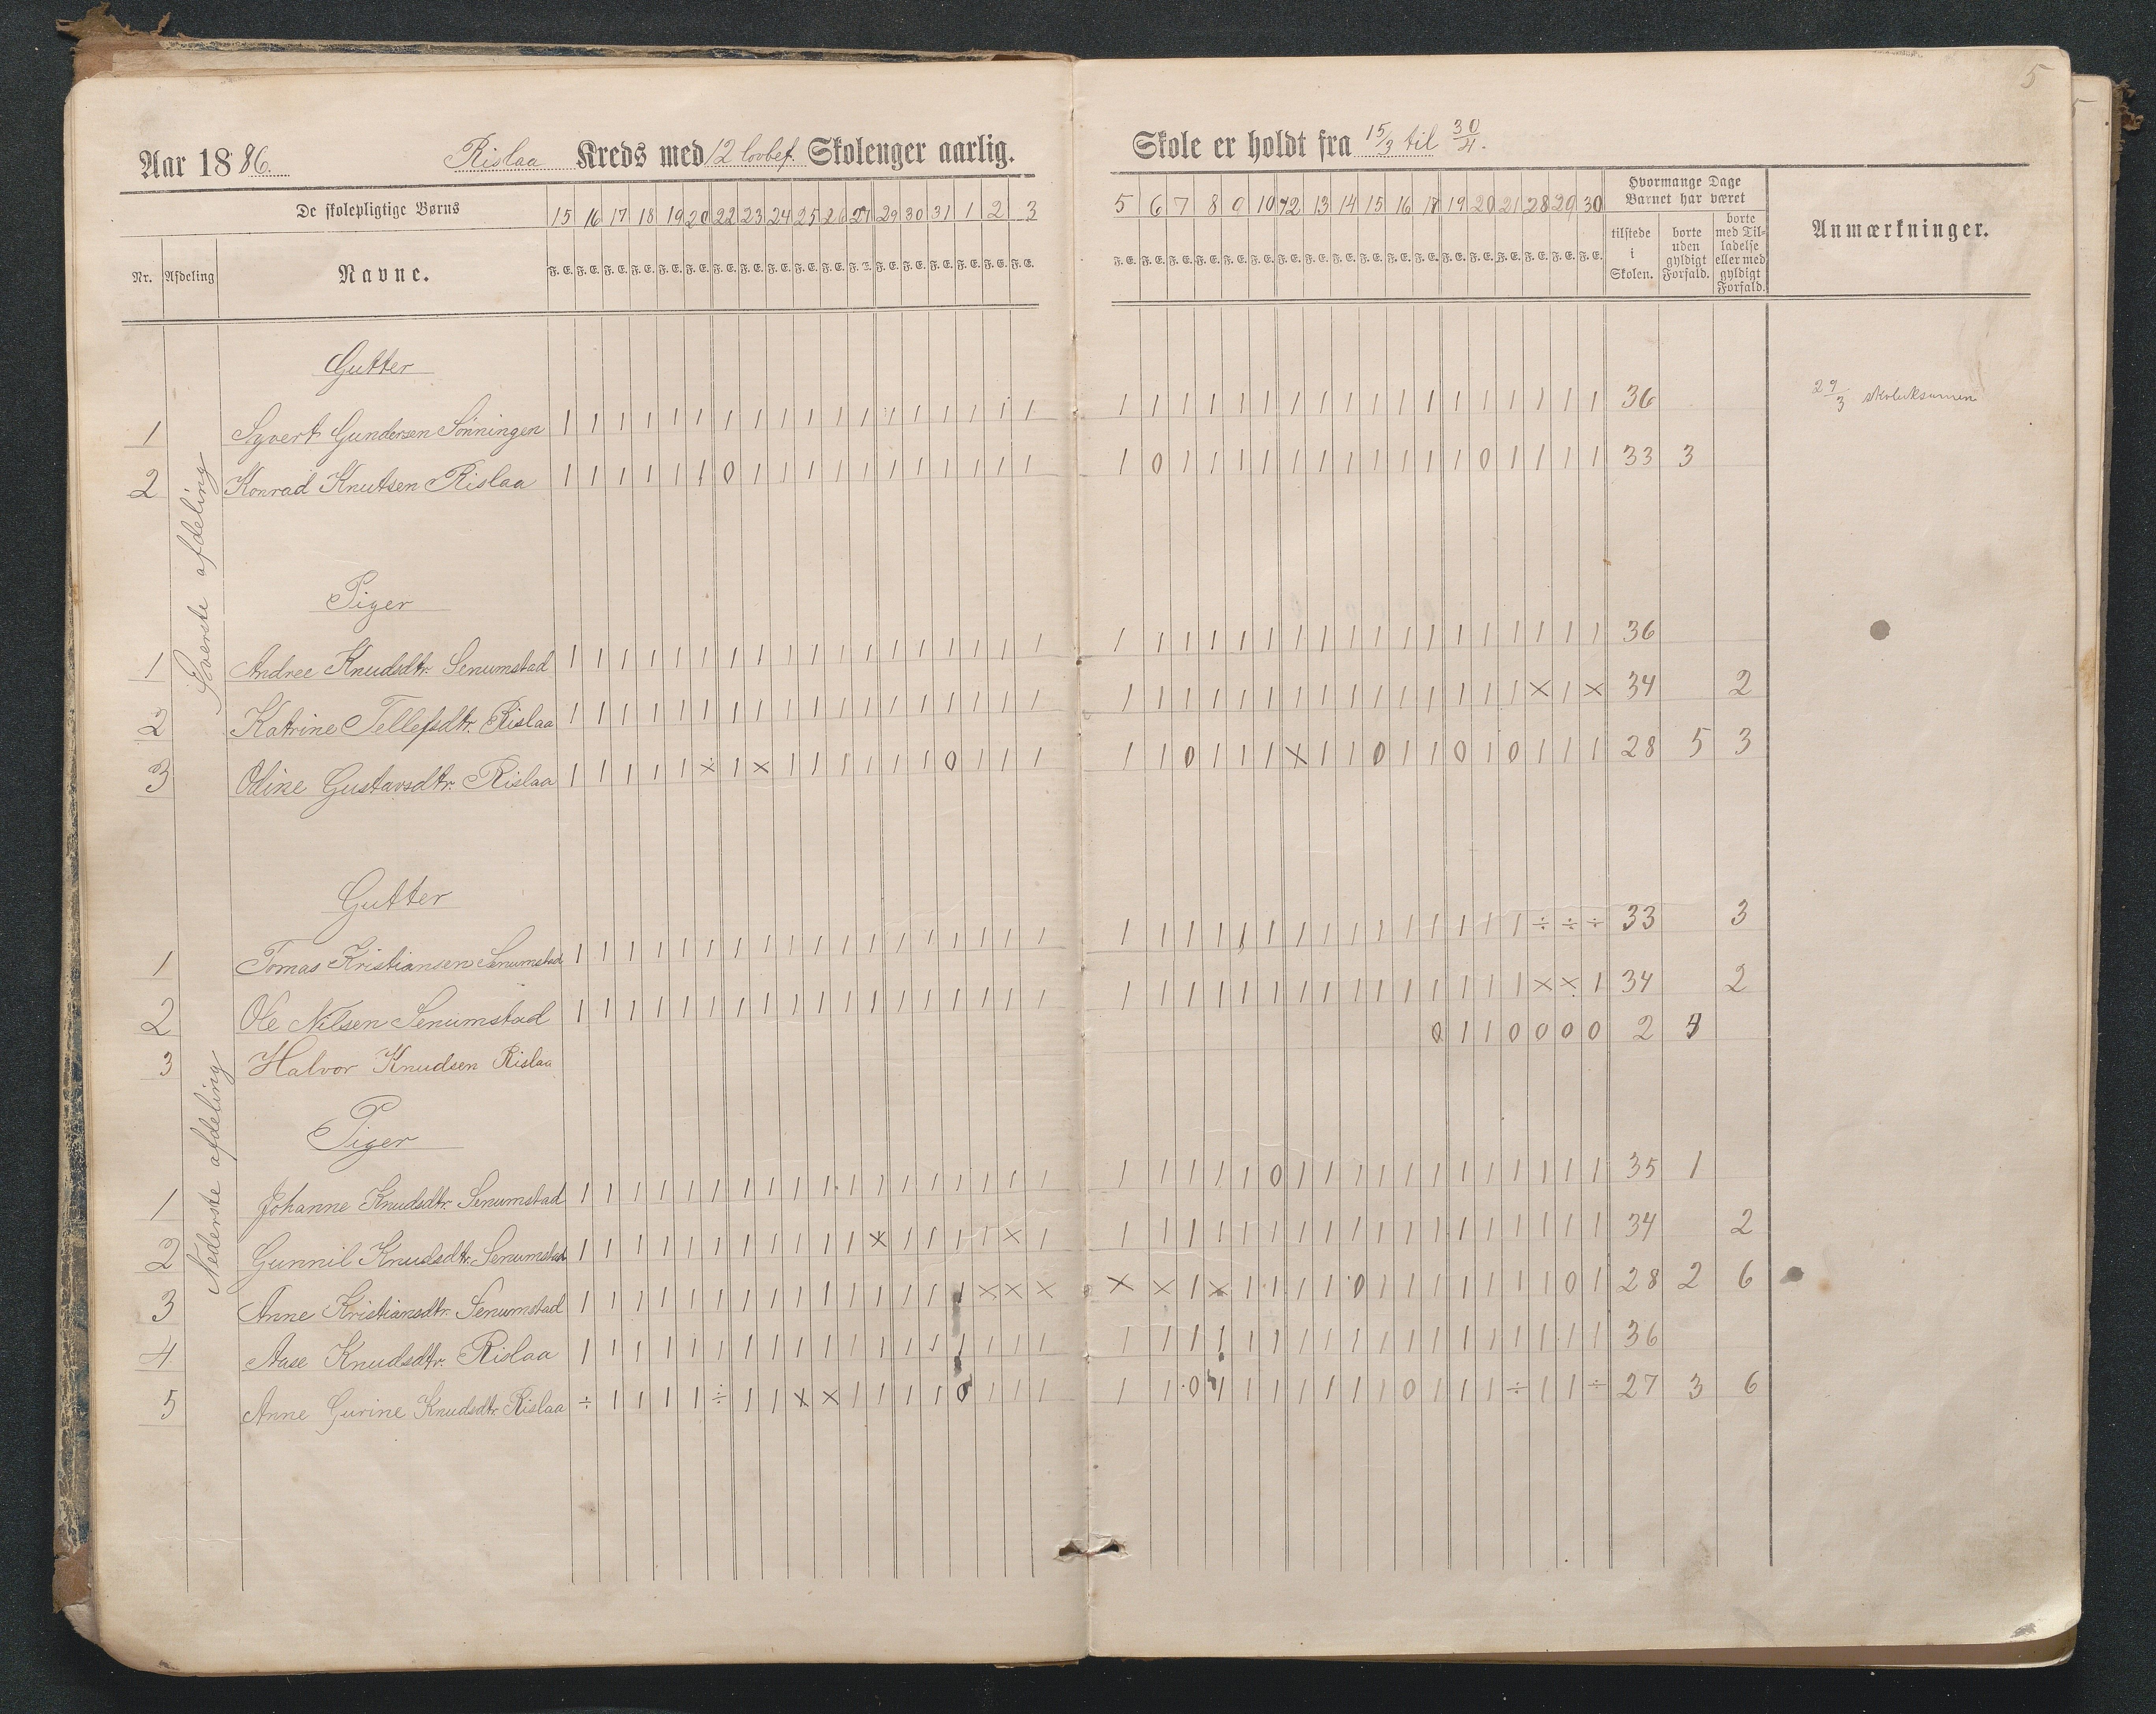 5
Aar 1886. Rislaa Kreds med 12 lovbef. Skolenger aarlig. Skole er holdt fra 15/3 til 30/4.
De skolepligtige Børns 15 16 17 18 19 20 22 23 24 25 26 27 29 30 31 1 2 3 5 6 7 8 9 10 12 13 14 15 16 18 19 20 21 28 29 30 Hvormange Dage Barnet har været
Nr. Afdeling Navne. F. E. F. E. F. E. F. E. F. E. F. E. F. E. F. E. F. E. F. E. F. E. F. E. F. E. F. E. F. E. F. E. F. E. F. E. F. E. F. E. F. E. F. E. F. E. F. E. F. E. F. E. F. E. F. E. F. E. F. E. F. E. F. E. F. E. F. E. F. E. F. E. tilstede i Skolen. borte uden gyldigt Forfald. borte med Tilladelse eller med gyldigt Forfald. Anmærkninger.
Øverste afdeling
Gutter
1 Syvert Gundersen Sønningen 1 1 1 1 1 1 1 1 1 1 1 1 1 1 1 1 1 1 1 1 1 1 1 1 1 1 1 1 1 1 1 1 1 1 1 1 36 29/3 skoleksamen
2 Konrad Knutsen Rislaa 1 1 1 1 1 1 0 1 1 1 1 1 1 1 1 1 1 1 1 0 1 1 1 1 1 1 1 1 1 1 1 0 1 1 1 1 33 3
Piger
1 Andree Knudsdtr. Senumstad 1 1 1 1 1 1 1 1 1 1 1 1 1 1 1 1 1 1 1 1 1 1 1 1 1 1 1 1 1 1 1 1 1 1 1 1 36
2 Katrine Tellefsdtr. Rislaa 1 1 1 1 1 1 1 1 1 1 1 1 1 1 1 1 1 1 1 1 1 1 1 1 1 1 1 1 1 1 1 1 1 × 1 × 34 2
3 Odine Gustavsdtr. Rislaa 1 1 1 1 1 × 1 × 1 1 1 1 1 1 0 1 1 1 1 1 0 1 1 1 × 1 1 0 1 1 0 1 0 1 1 1 28 5 3
Nederste afdeling
Gutter
1 Tomas Kristiansen Senumstad 1 1 1 1 1 1 1 1 1 1 1 1 1 1 1 1 1 1 1 1 1 1 1 1 1 1 1 1 1 1 1 1 1 ÷ ÷ ÷ 33 3
2 Ole Nilsen Senumstad 1 1 1 1 1 1 1 1 1 1 1 1 1 1 1 1 1 1 1 1 1 1 1 1 1 1 1 1 1 1 1 1 1 × × 1 34 2
3 Halvor Knudsen Rislaa 0 1 1 0 0 0 0 2
Piger
1 Johanne Knudsdtr. Senumstad 1 1 1 1 1 1 1 1 1 1 1 1 1 1 1 1 1 1 1 1 1 1 1 0 1 1 1 1 1 1 1 1 1 1 1 1 35 1
2 Gunnil Knudsdtr. Senumstad 1 1 1 1 1 1 1 1 1 1 1 × 1 1 1 1 × 1 1 1 1 1 1 1 1 1 1 1 1 1 1 1 1 1 1 1 34 2
3 Anne Kristiansdtr. Senumstad 1 1 1 1 1 1 1 1 1 1 1 1 1 1 1 × × × × × 1 × 1 1 1 1 0 1 1 1 1 1 1 1 0 1 28 2 6
4 Aase Knudsdtr. Rislaa 1 1 1 1 1 1 1 1 1 1 1 1 1 1 1 1 1 1 1 1 1 1 1 1 1 1 1 1 1 1 1 1 1 1 1 1 36
5 Anne Gurine Knudsdtr. Rislaa ÷ 1 1 1 1 ÷ 1 1 × × 1 1 1 1 0 1 1 1 1 1 0 1 1 1 1 1 1 1 0 1 1 1 ÷ 1 1 ÷ 27 3 6